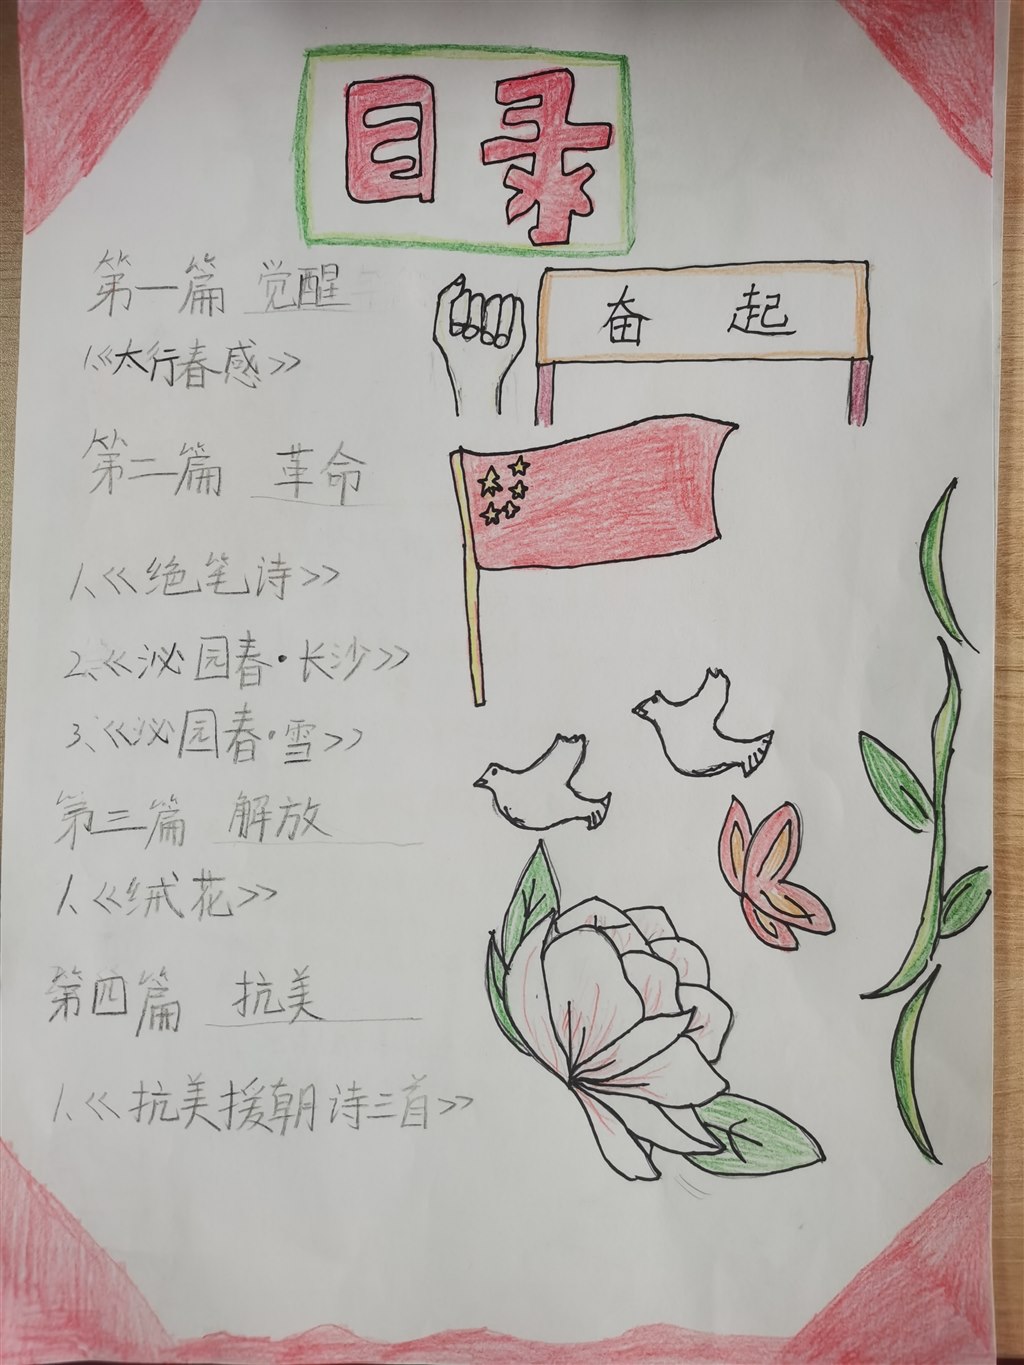 目录
第一篇 觉醒
奋起
1.《太行春感》
第二篇 革命
1、《绝笔诗》
2、《沁园春·长沙》
3、《沁园春·雪》
第三篇 解放
1、《绒花》
第四篇 抗美
1、《抗美援朝诗三首》